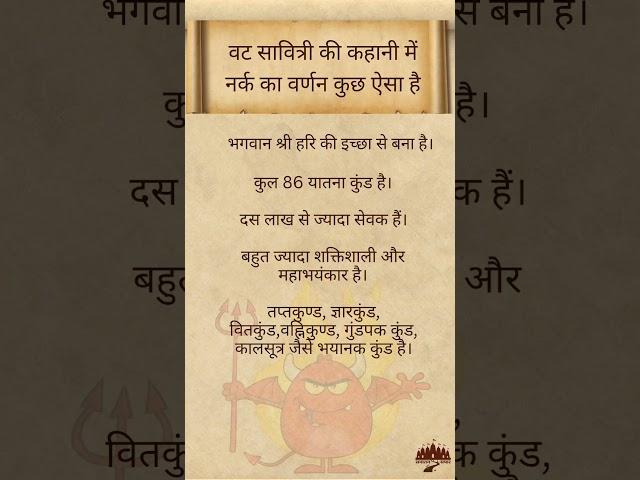 वट सावित्री की कहानी में
नर्क का वर्णन कुछ ऐसा है
भगवान श्री हरि की इच्छा से बना है।
कुल 86 यातना कुंड है।
दस लाख से ज्यादा सेवक हैं।
बहुत ज्यादा शक्तिशाली और
महाभयंकार है।
तप्तकुण्ड, ज्ञारकुंड,
वितकुंड,वह्निकुण्ड, गुंडपक कुंड,
कालसूत्र जैसे भयानक कुंड है।